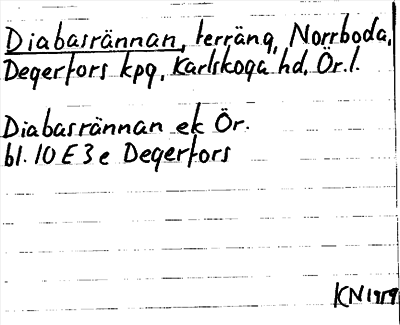 Diabasrännan, terräng, Norrboda,
Degerfors kpg, Karlskoga hd, Ör. l.
Diabasrännan ek Ör.
bl. 10 E 3 e Degerfors
KN 1959